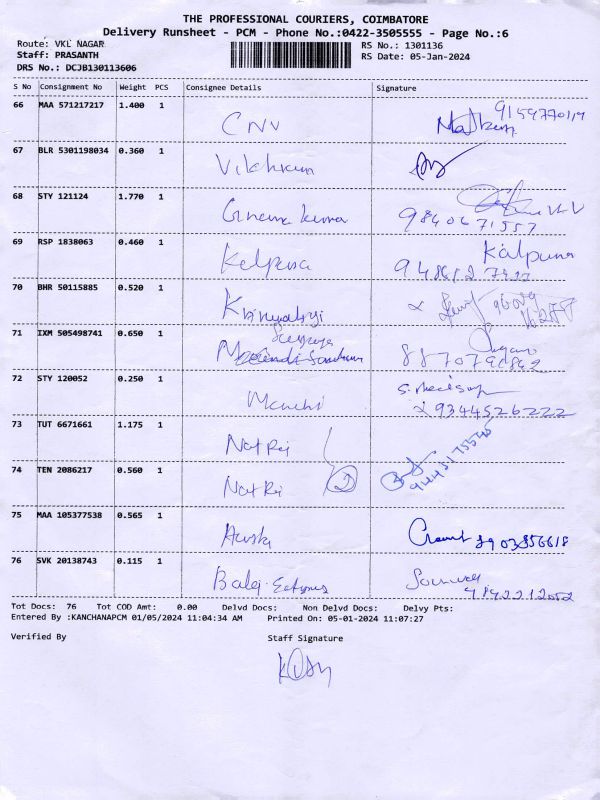 THE PROFESSIONAL COURIERS, COIMBATORE
Delivery Runsheet - PCM - Phone No.:0422-3505555 - Page No.:6
Route: VKL NAGAR RS No.: 1301136
Staff: PRASANTH RS Date: 05-Jan-2024
DRS No.: DCJB130113606
S No Consignment No Weight PCS Consignee Details Signature
66 MAA 571217217 1.400 1 CNV
67 BLR 5301198034 0.360 1 Vikhram
68 STY 121124 1.770 1 9840671557
69 RSP 1838063 0.460 1 Kalpana Kalpuna
70 BHR 50115885 0.520 1
71 IXM 505498741 0.650 1
72 STY 120052 0.250 1 9344526222
73 TUT 6671661 1.175 1 NatRej
74 TEN 2086217 0.560 1 NatRej 2
75 MAA 105377538 0.565 1 8903856618
76 SVK 20138743 0.115 1 9842212052
Tot Docs: 76 Tot COD Amt: 0.00 Delvd Docs: Non Delvd Docs: Delvy Pts:
Entered By :KANCHANAPCM 01/05/2024 11:04:34 AM Printed On: 05-01-2024 11:07:27
Verified By Staff Signature